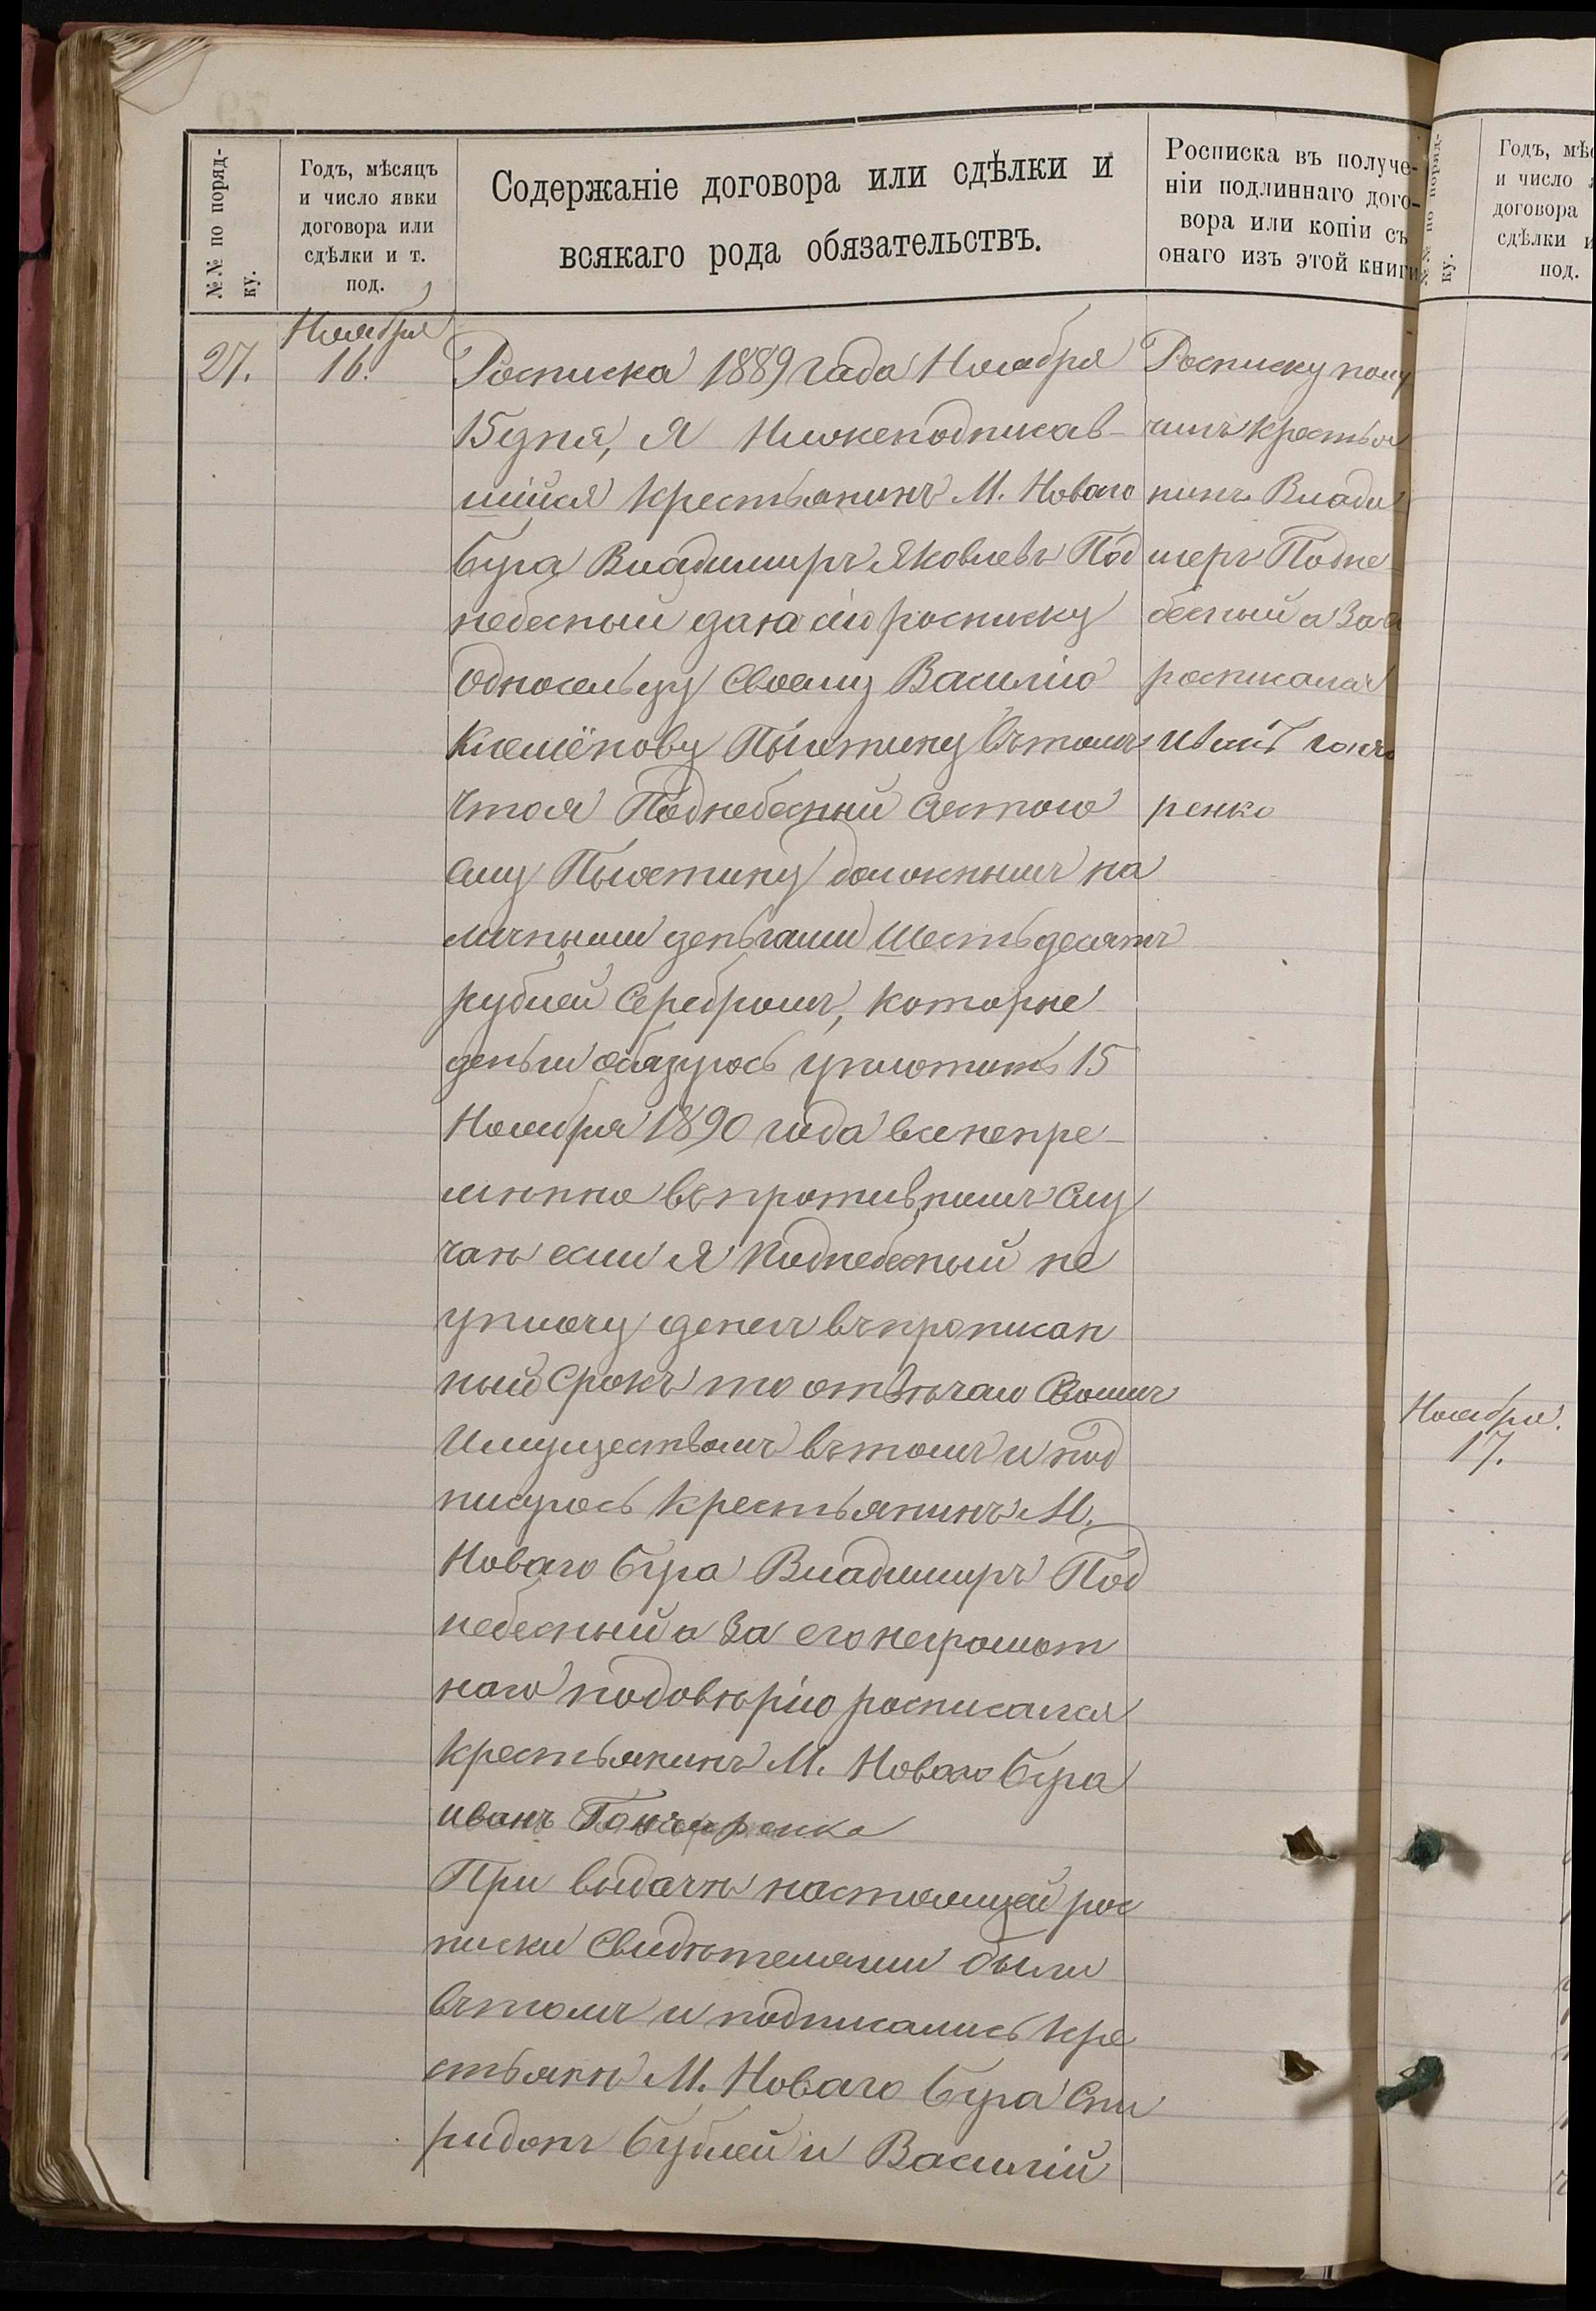 №№ по поряд-
ку.
Годъ, мѣсяцъ
и число явки
договора или
сдѣлки и т.
под.
Содержаніе договора или сдѣлки и
всякаго рода обязательствъ.
Росписка въ получе-
ніи подлиннаго дого-
вора или копіи съ
онаго изъ этой книги
27.
Ноября
16.
Росписка 1889 года Ноября
15 дня, Я Нижеподписав-
шійся крестьянинъ М. Новаго
Буга Владимиръ Яковлевъ Под
небесный даю сію росписку
односельцу своему Василію
въ томъ
что я Поднебесный состою
ему должнымъ на
личными деньгами Шестьдесятъ
рублей Серебромъ, которые
деньги обязуюсь уплотить 15
Ноября 1890 года всенепре-
мѣнно въ противномъ слу
чаѣ если я Поднебесный не
уплочу денегъ въ прописан
ный срокъ то отвѣчаю Своимъ
Имуществомъ въ томъ и под
писуюсь крестьянинъ М.
Новаго Буга Владимиръ Под
небесный а За его неграмот
наго по довѣрію росписался
крестьянинъ М. Новаго Буга
иванъ Гончаренко
При выдачѣ настоящей рос
писки Свидѣтелями были
въ томъ и подписались кре
стьянѣ М. Новаго Буга Спи
ридонъ Бублей и Василій
Росписку полу
чилъ крестья
нинъ Влади
меръ Подне
бесный а За
росписался
иванъ гонча
ренко
№№ по поряд-
ку.
Годъ, мѣс
и число
договора
сдѣлки и
под.
Ноября.
17.